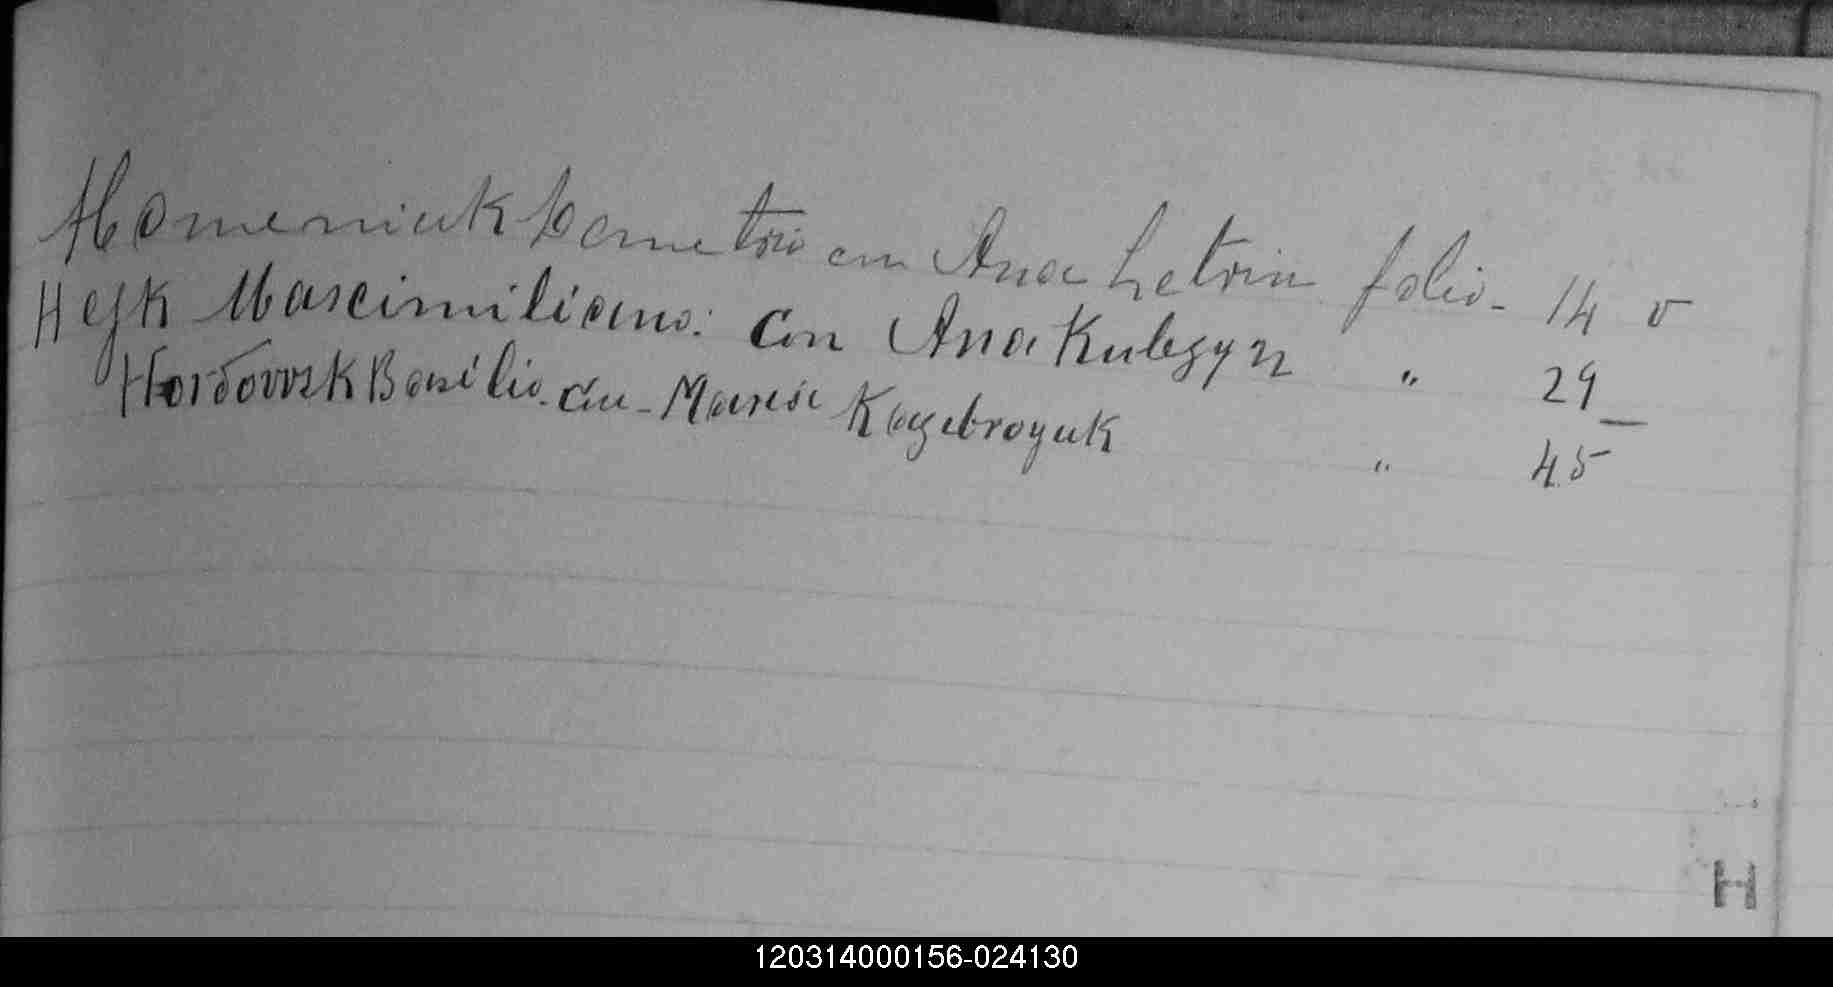 Homeniuk Demetrio con Ana Letrin folio - 14 v
Hejk Mascimiliano: Con Ana Kulezyn " 29
Hordowsk Basilio. Con - Maria Kozebroyuk " 45
H
120314000156-024130